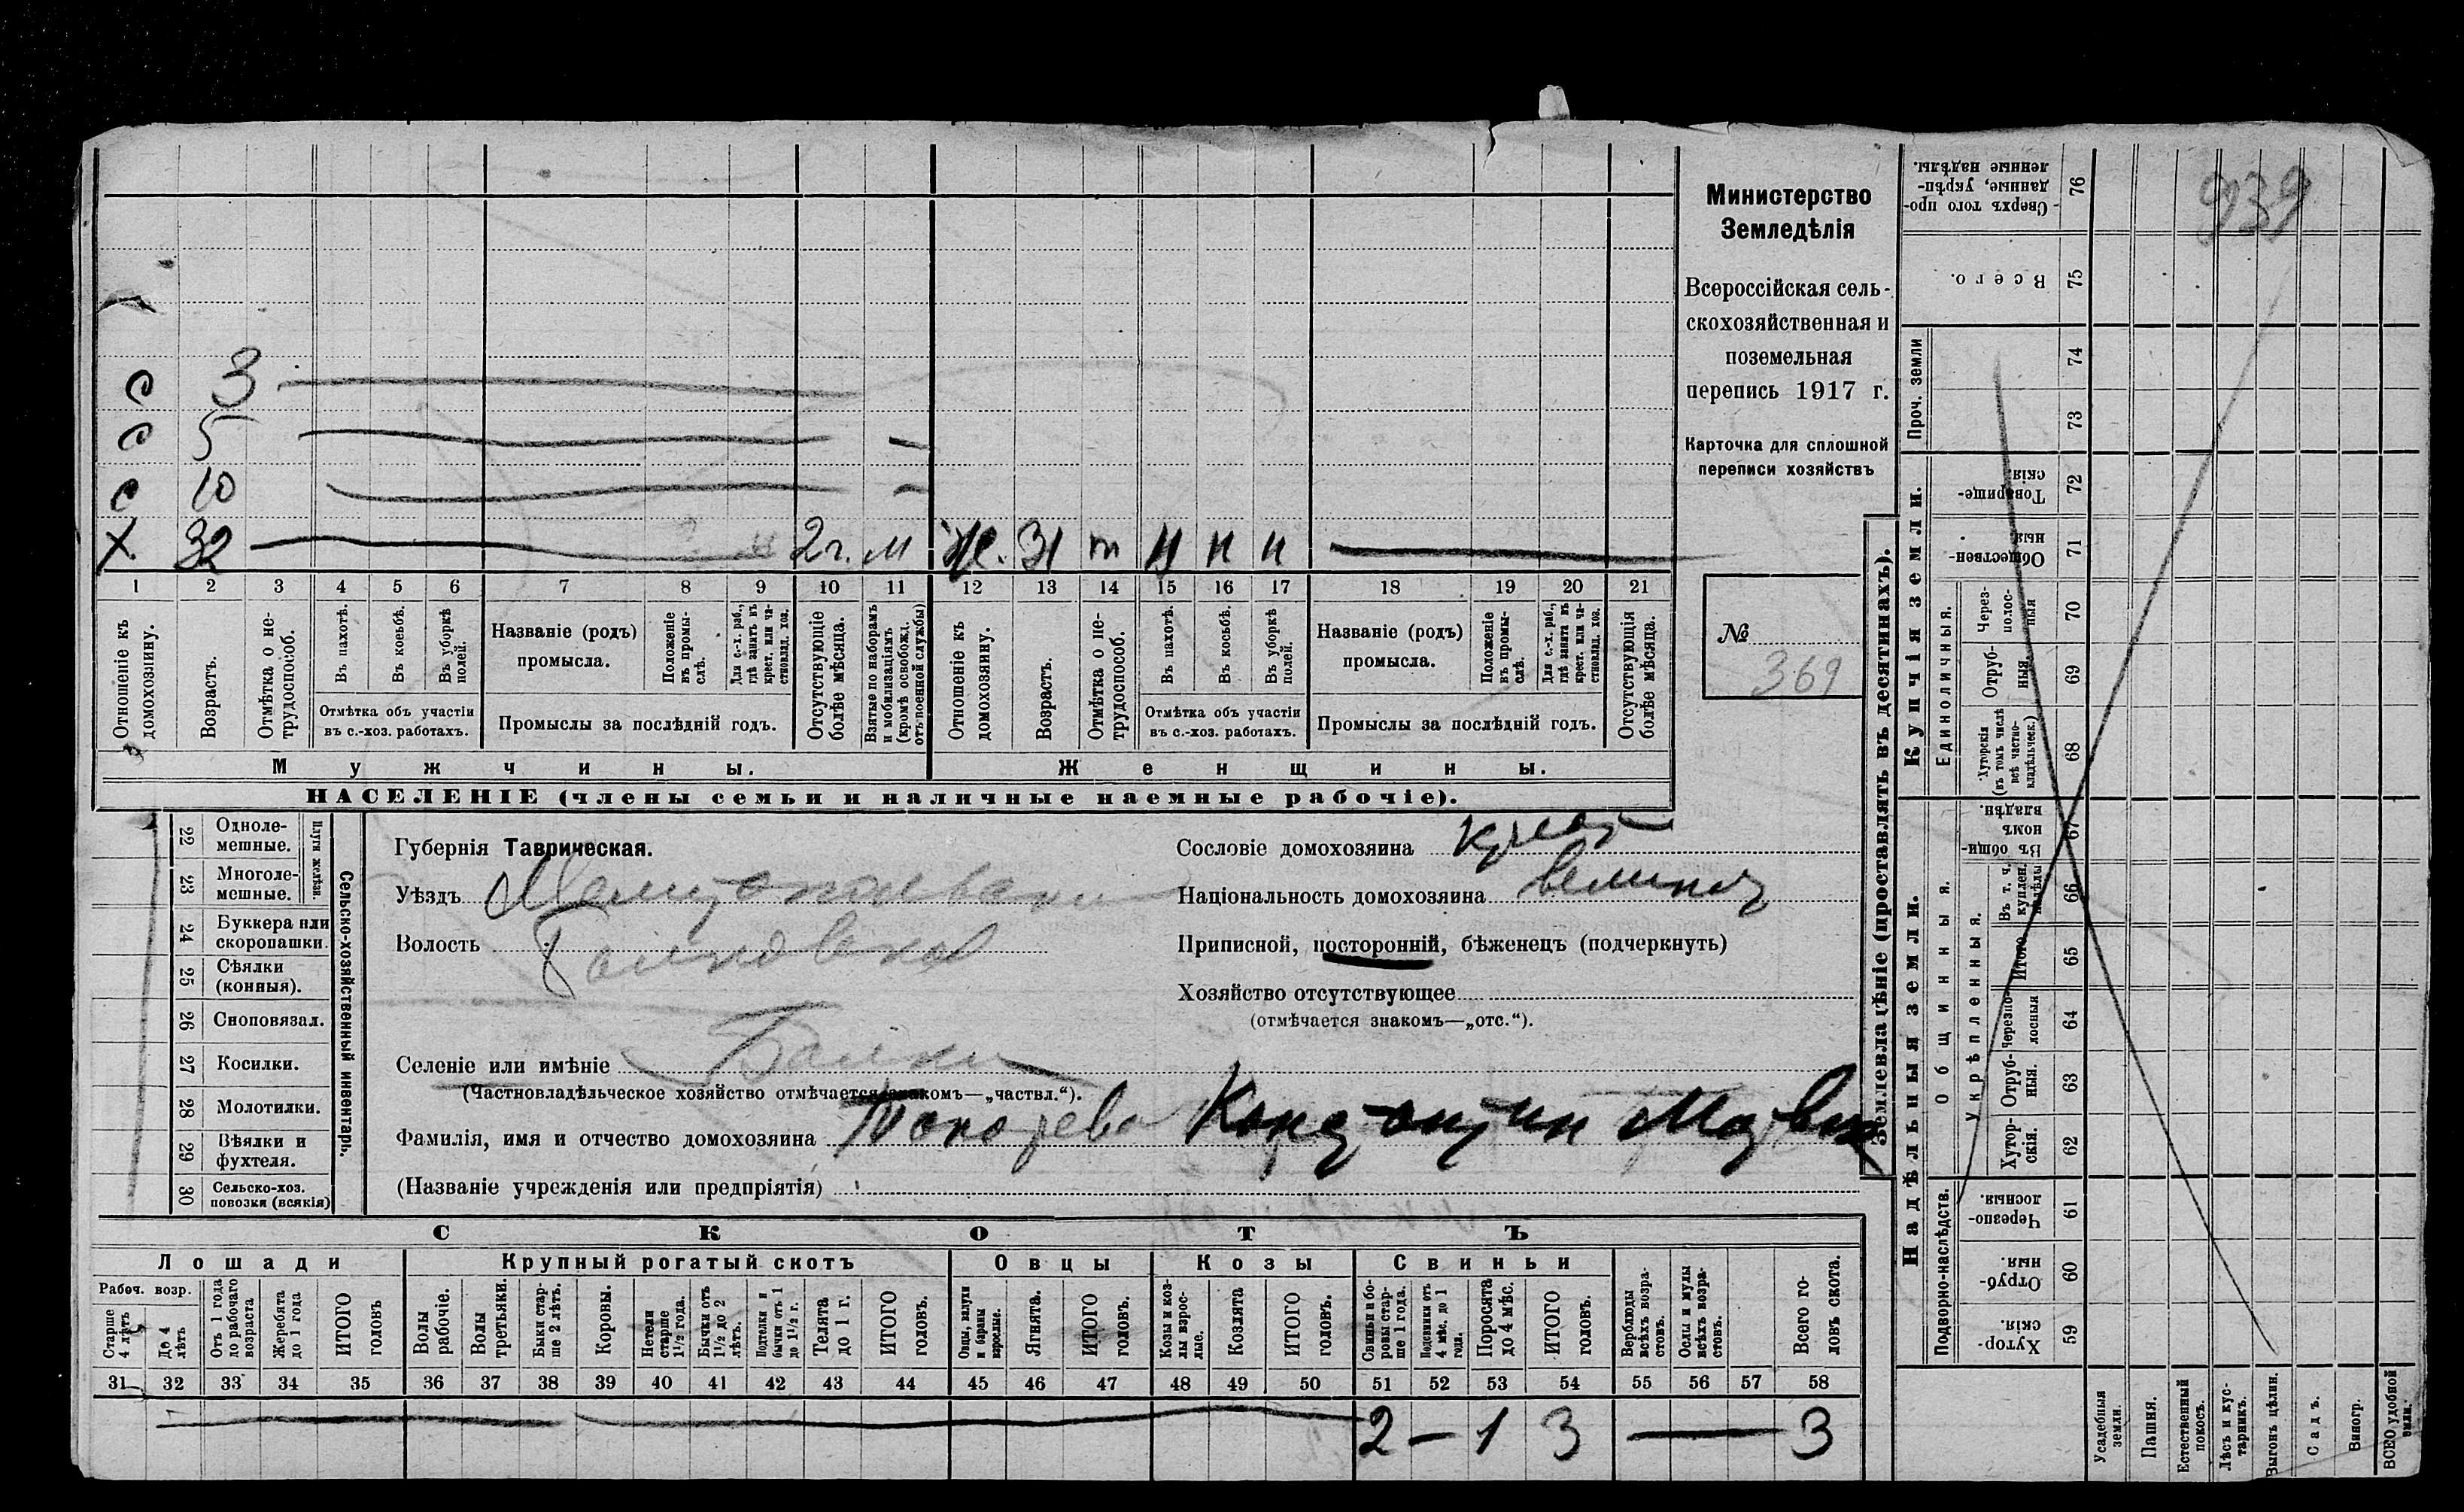 939
Министерство
Земледѣлія
Всероссійская сель-
скохозяйственная и
поземельная
перепись 1917 г.
Карточка для сплошной
переписи хозяйствъ
№
369
с 3
с 5
с 10
х. 32 2 г. м ж. 31 т н н н
1 2 3 4 5 6 7 8 9 10 11 12 13 14 15 16 17 18 19 20 21
Отношеніе къ домохозяину.
Возрастъ.
Отмѣтка о не-трудоспособ.
Въ пахотѣ.
Въ косьбѣ.
Въ уборкѣ полей.
Отмѣтка объ участіи
въ с.-хоз. работахъ.
Названіе (родъ)
промысла.
Положеніе въ промы-слѣ.
Для с.-х. раб., гдѣ занятъ въ крест. или ча-стновлад. хоз.
Промыслы за послѣдній годъ.
Отсутствующіе болѣе мѣсяца.
Взятые по наборамъ и мобилизаціямъ (кромѣ освобожд. отъ военной службы)
Отношеніе къ домохозяину.
Возрастъ.
Отмѣтка о не-трудоспособ.
Въ пахотѣ.
Въ косьбѣ.
Въ уборкѣ полей.
Отмѣтка объ участіи
въ с.-хоз. работахъ.
Названіе (родъ)
промысла.
Положеніе въ промы-слѣ.
Для с.-х. раб., гдѣ занята въ крест. или ча-стновлад. хоз.
Промыслы за послѣдній годъ.
Отсутствующія болѣе мѣсяца.
Мужчины. Женщины.
НАСЕЛЕНІЕ (члены семьи и наличные наемные рабочіе).
Сельско-хозяйственный инвентарь.
Плуги желѣзн.
22 Одноле-мешные.
23 Многоле-мешные.
24 Буккера или скоропашки.
25 Сѣялки (конныя).
26 Сноповязал.
27 Косилки.
28 Молотилки.
29 Вѣялки и фухтеля.
30 Сельско-хоз. повозки (всякія)
Губернія Таврическая.
Уѣздъ
Волость
Селеніе или имѣніе Балки
(Частновладѣльческое хозяйство отмѣчается знакомъ—„частвл.“).
Фамилія, имя и отчество домохозяина Константин
(Названіе учрежденія или предпріятія)
Сословіе домохозяина
Національность домохозяина
Приписной, посторонній, бѣженецъ (подчеркнуть)
Хозяйство отсутствующее
(отмѣчается знакомъ—„отс.“).
СКОТЪ
Лошади Крупный рогатый скотъ Овцы Козы Свиньи
Рабоч. возр.
Старше 4 лѣтъ
До 4 лѣтъ
Отъ 1 года до рабочаго возраста
Жеребята до 1 года
ИТОГО головъ
Волы рабочіе.
Волы третьяки.
Быки стар-ше 2 лѣтъ.
Коровы.
Нетели старше 1½ года.
Бычки отъ 1½ до 2 лѣтъ.
Подтелки и бычки отъ 1 до 1½ г.
Телята до 1 г.
ИТОГО головъ.
Овцы, валухи и бараны взрослые.
Ягнята.
ИТОГО головъ.
Козы и коз-лы взрос-лые.
Козлята
ИТОГО головъ.
Свиньи и бо-ровы стар-ше 1 года.
Подсвинки отъ 4 мѣс. до 1 года.
Поросята до 4 мѣс.
ИТОГО головъ.
Верблюды всѣхъ возра-стовъ.
Ослы и мулы всѣхъ возра-стовъ.
Всего го-ловъ скота.
31 32 33 34 35 36 37 38 39 40 41 42 43 44 45 46 47 48 49 50 51 52 53 54 55 56 57 58
2 — 1 3 — 3
Землевладѣніе (проставлять въ десятинахъ).
Купчія земли.
Надѣльныя земли.
Проч. земли
Единоличныя.
Общинныя.
Укрѣпленныя.
Подворно-наслѣдств.
Сверхъ того про-данные, укрѣп-ленные надѣлы. 76
Всего. 75
74
73
Товарище-скія 72
Обществен-ныя 71
Через-полос-ныя 70
Отруб-ныя 69
Хуторскія (въ томъ числѣ всѣ частно-владѣльческ.) 68
Въ общи-номъ владѣн. 67
Въ т. ч. куплен. надѣлы 66
Итого 65
Черезпо-лосныя 64
Отруб-ныя. 63
Хутор-скія. 62
Черезпо-лосныя. 61
Отруб-ныя. 60
Хутор-скія. 59
Усадебныя земли.
Пашня.
Естественный покосъ.
Лѣсъ и кус-тарникъ.
Выгонъ цѣлин.
Садъ.
Виногр.
ВСЕГО удобной земли.